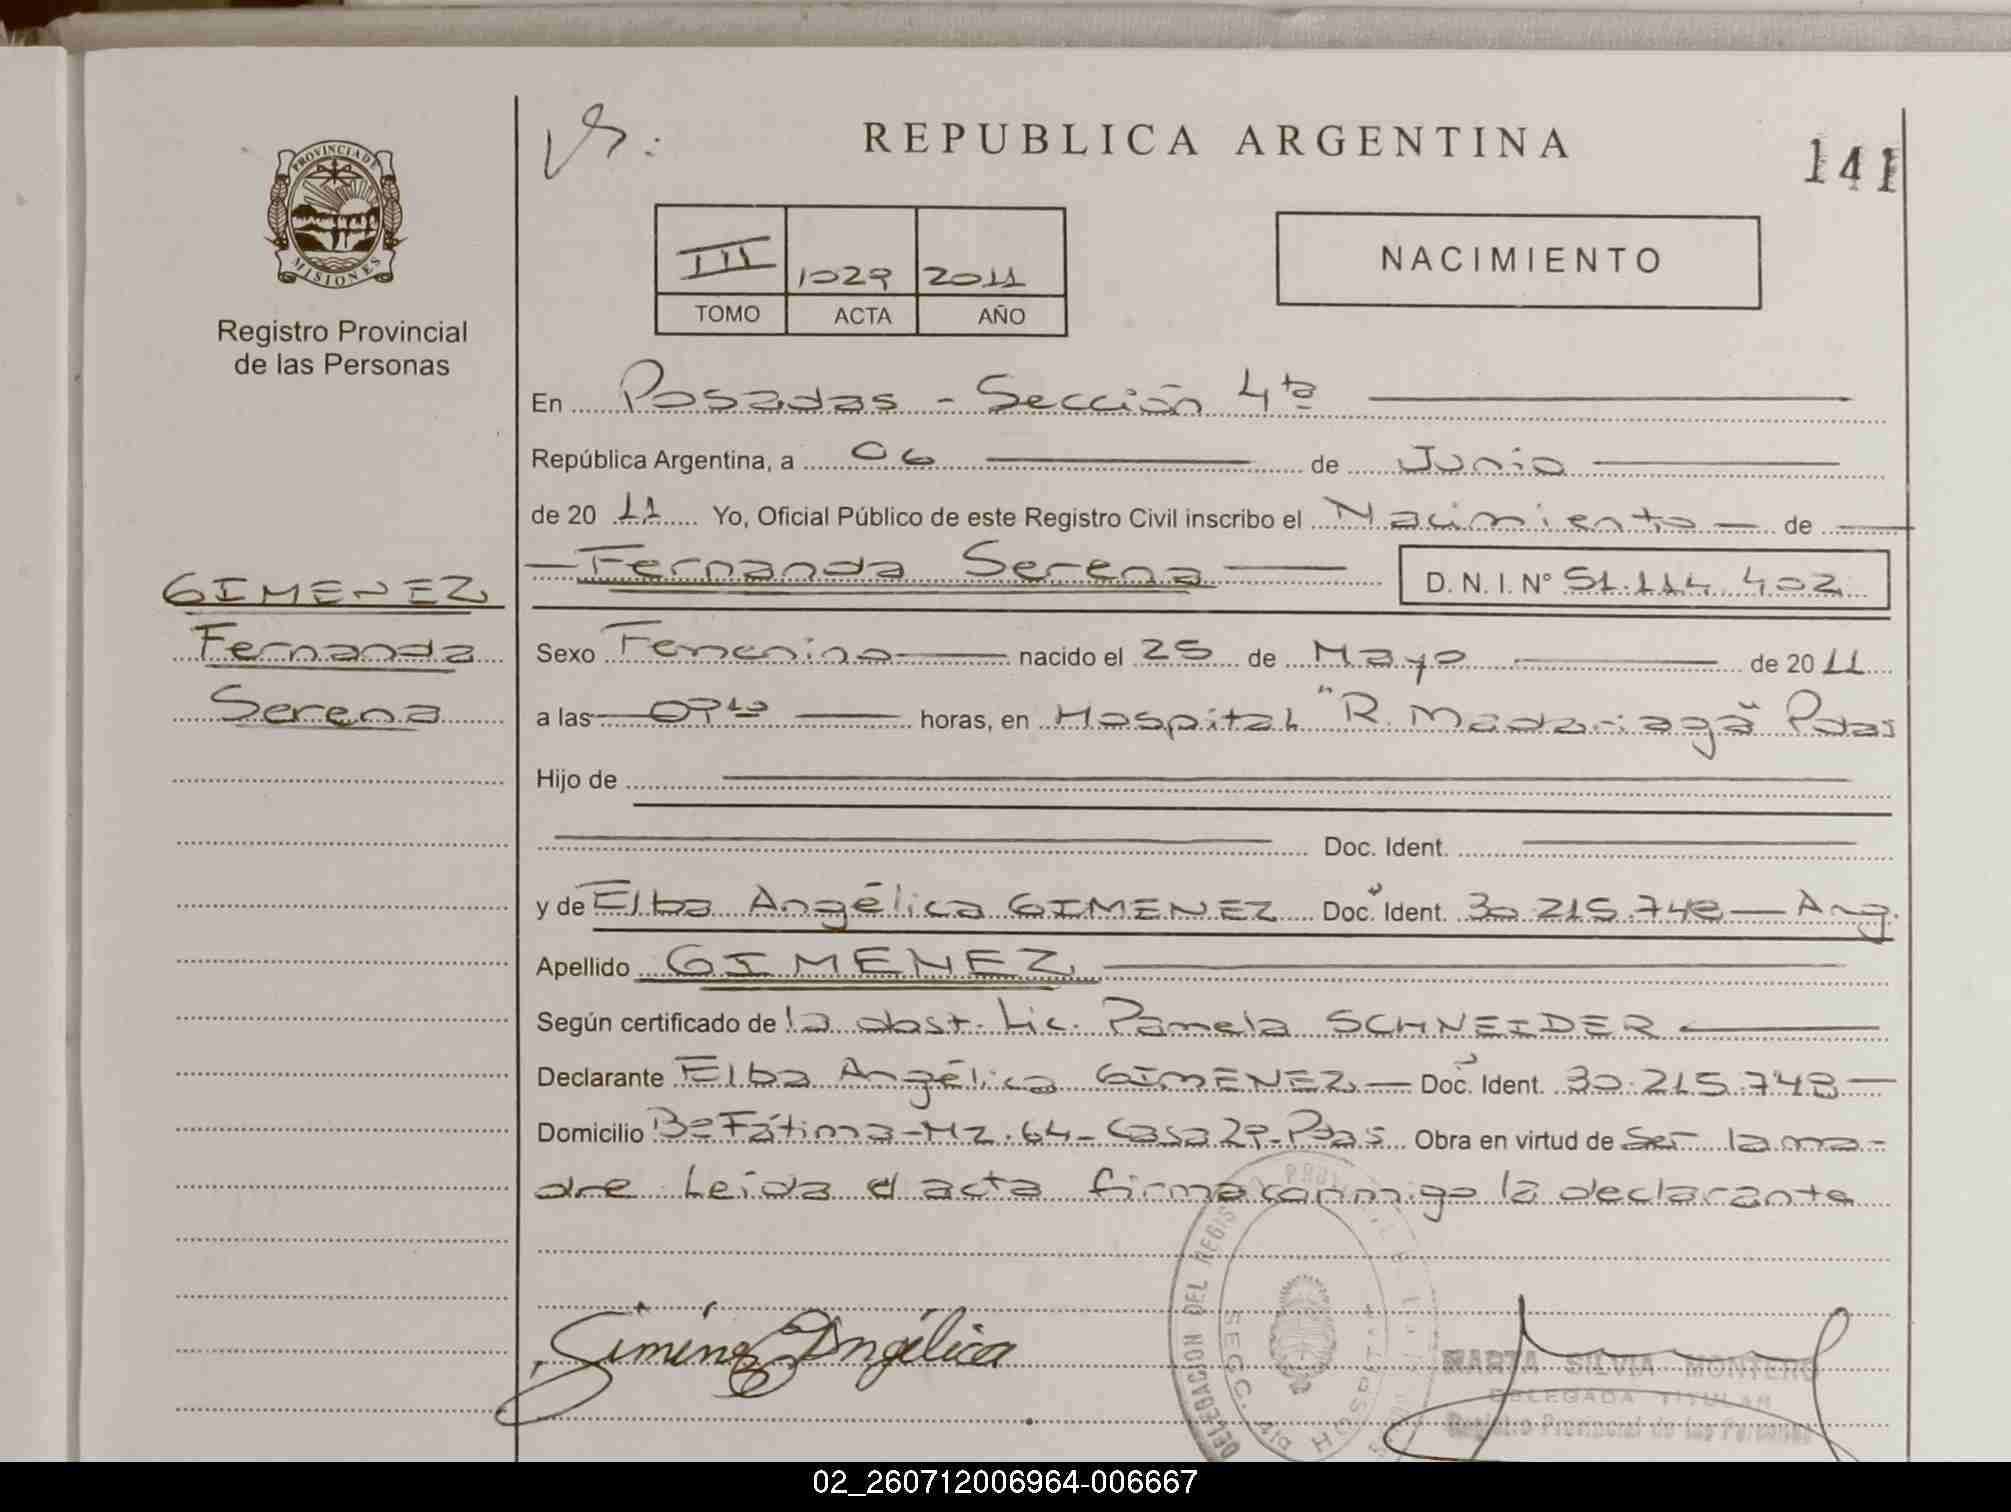 REPUBLICA ARGENTINA
141
PROVINCIA DE
MISIONES
Registro Provincial
de las Personas
III 1029 2011
TOMO ACTA AÑO
NACIMIENTO
En Posadas - Sección 4ta
República Argentina, a 06 de Junio
de 20 11 Yo, Oficial Público de este Registro Civil inscribo el Nacimiento de
Fernanda Serena D. N. I. N° 51.114.402
GIMENEZ
Fernanda
Serena
Sexo Femenino nacido el 25 de Mayo de 20 11
a las horas, en Hospital "R. Madariaga" Pdas
Hijo de
Doc. Ident.
y de Elba Angélica GIMENEZ Doc. Ident. 30.215.748 — Arg.
Apellido GIMENEZ
Según certificado de la obst. Lic. Pamela SCHNEIDER
Declarante Elba Angélica GIMENEZ — Doc. Ident. 30.215.748 —
Domicilio Bº Fátima - Mz. 64 - Casa 29 - Pdas Obra en virtud de ser la ma-
dre Leída el acta firma conmigo la declarante
Giménez Angélica
DELEGACION DEL REGIS
SECC. 4ta HOSPITAL
MARTA SILVIA MONTERO
DELEGADA TITULAR
Registro Provincial de las Personas
02_260712006964-006667